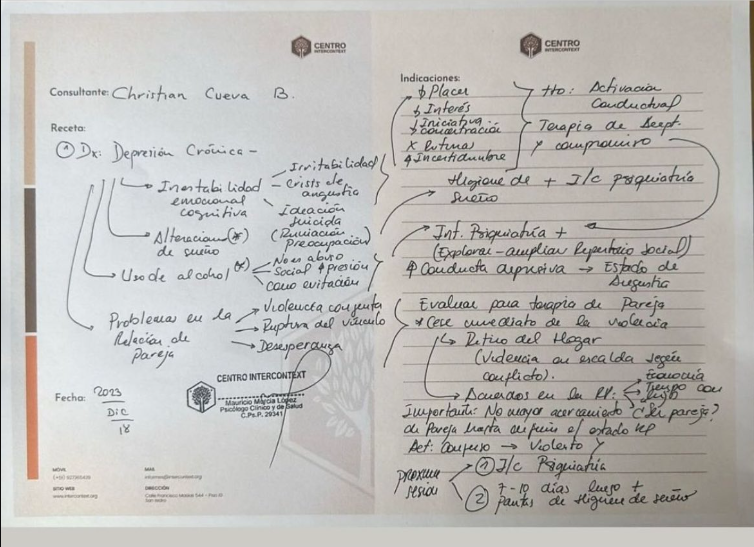 CENTRO
INTERCONTEXT
Consultante: Christian Cueva B.
Receta:
① Dx: Depresión Crónica -
→ Inestabilidad
emocional
cognitiva
Irritabilidad
Crisis de
angustia
Ideación
Suicida
(Rumiación
Preocupación)
→ Alteraciones (*)
de sueño
→ Uso de alcohol (*)
No es abuso
Social ↑ presión
como evitación
Problemas en la
Relación de
Pareja
→ Violencia conjunta
→ Ruptura del vínculo
→ Desesperanza
Fecha: 2023
DIC
18
CENTRO INTERCONTEXT
Mauricio Murcia López
Psicólogo Clínico y de Salud
C.Ps.P. 29341
MÓVIL
MAIL
informes@intercontext.org
SITIO WEB
www.intercontext.org
DIRECCIÓN
CENTRO
INTERCONTEXT
Indicaciones:
↓ Placer
↓ Interés
↓ Iniciativa
↓ concentración
X Rutinas
↑ Incertidumbre
tto: Activación
Conductual
Terapia de Acept.
y compromiso
→ Higiene de + I/c Psiquiatría
Sueño
→ Int. Psiquiatría +
(Explorar - ampliar Repertorio Social)
↑ Conducta depresiva → Estado de
Angustia
Evaluar para terapia de Pareja
* Cese inmediato de la violencia
↳ Retiro del Hogar
(Violencia en escalda según
conflicto).
→ Acuerdos en la RP:
→ Economía
→ Tiempo con
Important: No mayor acercamiento
de Pareja hasta definir el estado RP
Act: Confuso → Violento
proxima
sesión
→ ① I/c Psiquiatría
② 7-10 días luego +
Pautas de Higiene de sueño